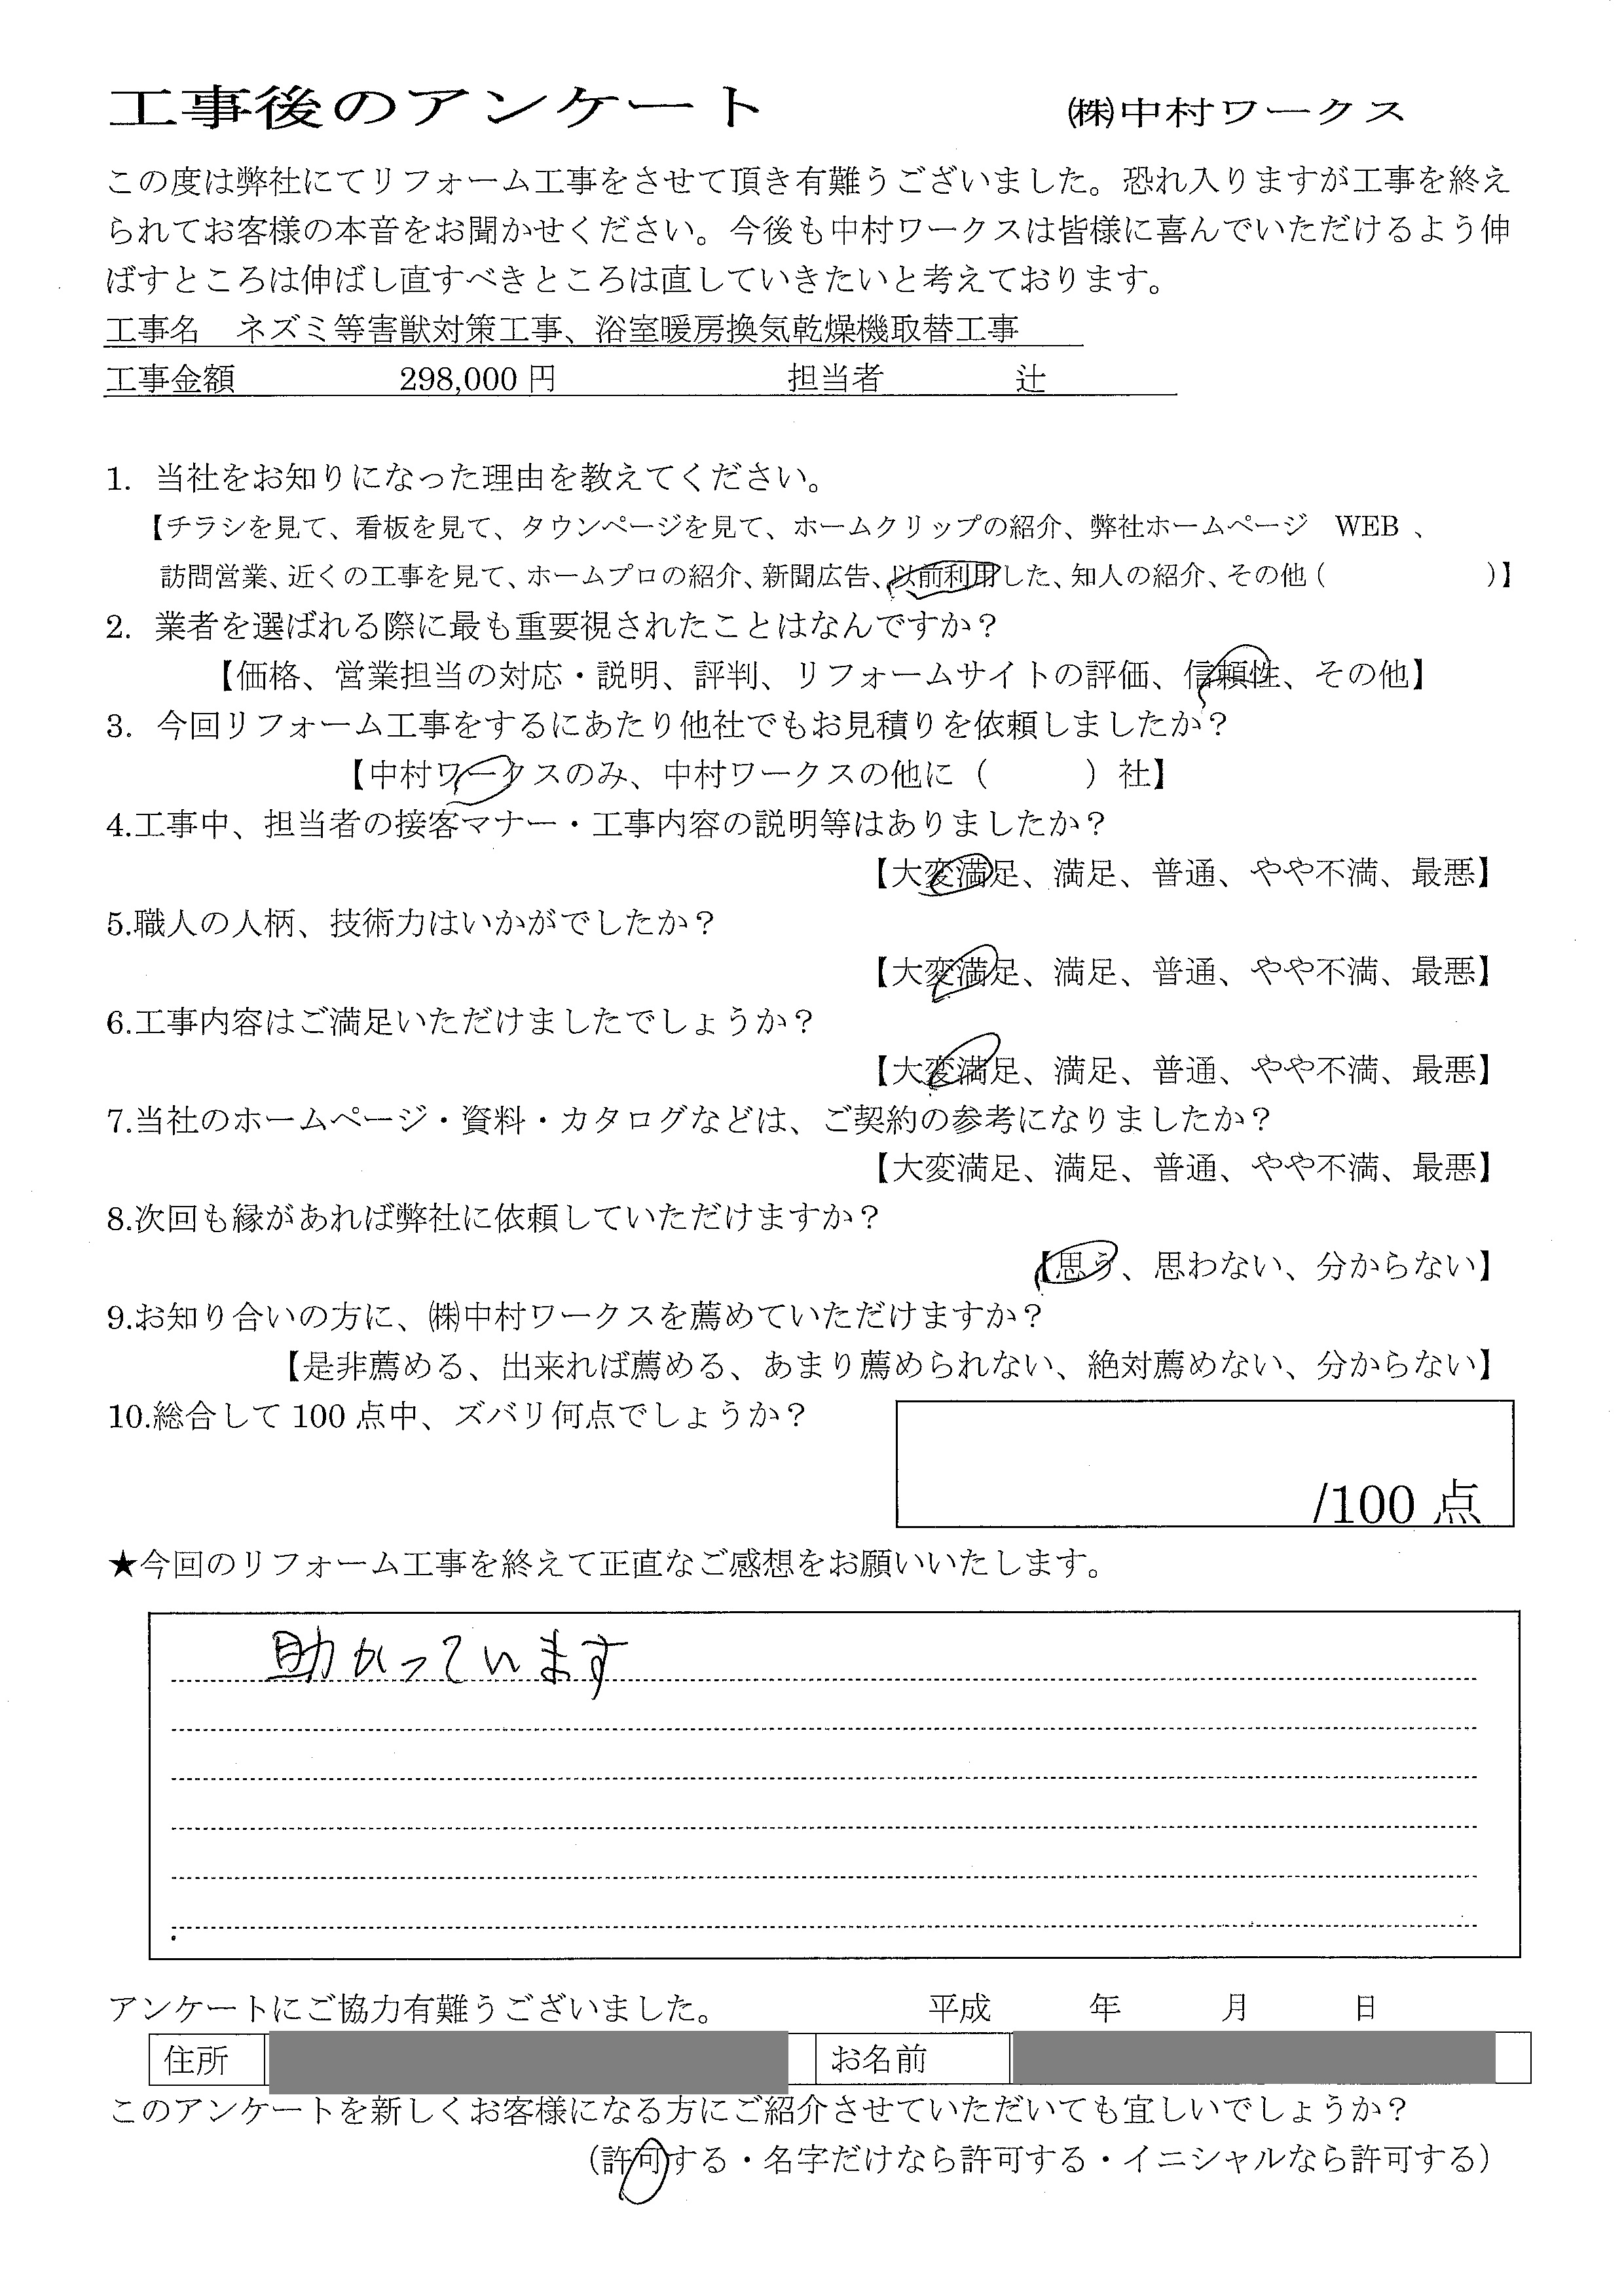 工事後のアンケート　㈱中村ワークス
この度は弊社にてリフォーム工事をさせて頂き有難うございました。恐れ入りますが工事を終え
られてお客様の本音をお聞かせください。今後も中村ワークスは皆様に喜んでいただけるよう伸
ばすところは伸ばし直すべきところは直していきたいと考えております。
工事名　ネズミ等害獣対策工事、浴室暖房換気乾燥機取替工事
工事金額　298,000 円　担当者　辻
1. 当社をお知りになった理由を教えてください。
【チラシを見て、看板を見て、タウンページを見て、ホームクリップの紹介、弊社ホームページ　WEB 、
訪問営業、近くの工事を見て、ホームプロの紹介、新聞広告、以前利用した、知人の紹介、その他（　　　）】
2. 業者を選ばれる際に最も重要視されたことはなんですか？
【価格、営業担当の対応・説明、評判、リフォームサイトの評価、信頼性、その他】
3. 今回リフォーム工事をするにあたり他社でもお見積りを依頼しましたか？
【中村ワークスのみ、中村ワークスの他に（　　　）社】
4.工事中、担当者の接客マナー・工事内容の説明等はありましたか？
【大変満足、満足、普通、やや不満、最悪】
5.職人の人柄、技術力はいかがでしたか？
【大変満足、満足、普通、やや不満、最悪】
6.工事内容はご満足いただけましたでしょうか？
【大変満足、満足、普通、やや不満、最悪】
7.当社のホームページ・資料・カタログなどは、ご契約の参考になりましたか？
【大変満足、満足、普通、やや不満、最悪】
8.次回も縁があれば弊社に依頼していただけますか？
【思う、思わない、分からない】
9.お知り合いの方に、㈱中村ワークスを薦めていただけますか？
【是非薦める、出来れば薦める、あまり薦められない、絶対薦めない、分からない】
10.総合して 100 点中、ズバリ何点でしょうか？
/100 点
★今回のリフォーム工事を終えて正直なご感想をお願いいたします。
助かっています
アンケートにご協力有難うございました。　平成　年　月　日
住所　お名前
このアンケートを新しくお客様になる方にご紹介させていただいても宜しいでしょうか？
（許可する・名字だけなら許可する・イニシャルなら許可する）